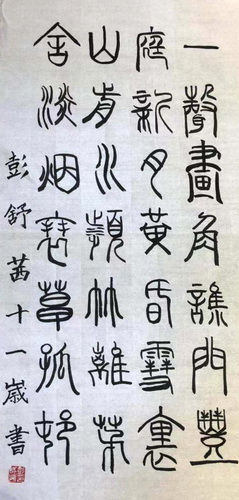 一聲畫角譙門豐
庭新月黃昏雪裏
山前水頻竹離茅
舍淡烟衰草孤邨
彭舒茜十一歲書